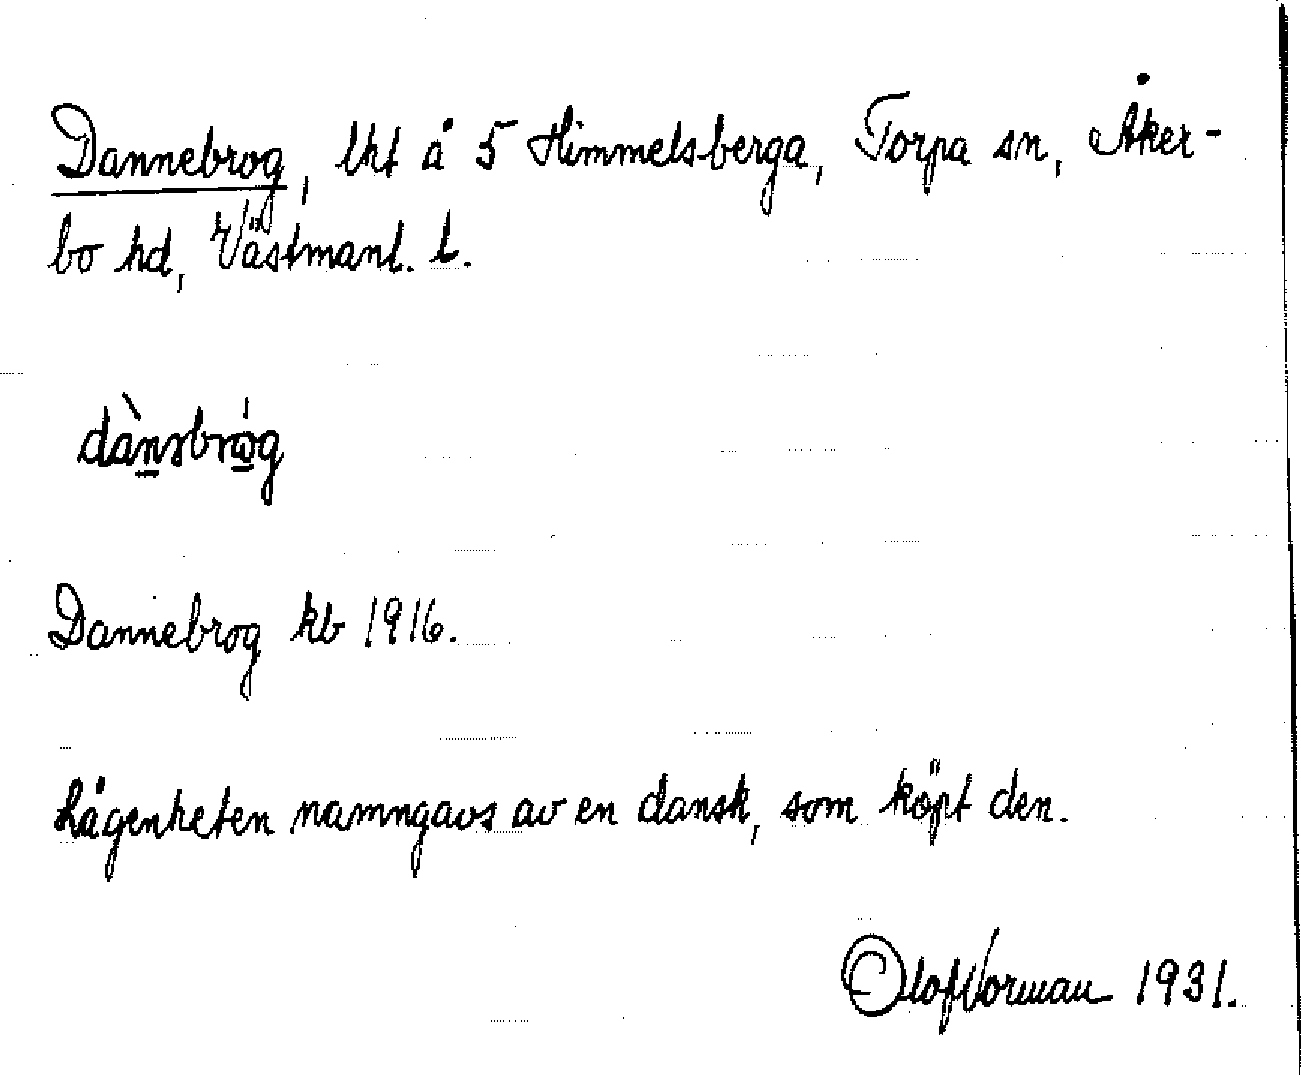 Dannebrog, lht å 5 Himmelsberga, Torpa sn, Åker-
bo hd, Västmanl. l.
dànsbróg
Dannebrog kb 1916.
Lägenheten namngavs av en dansk, som köpt den.
Olof Norman 1931.